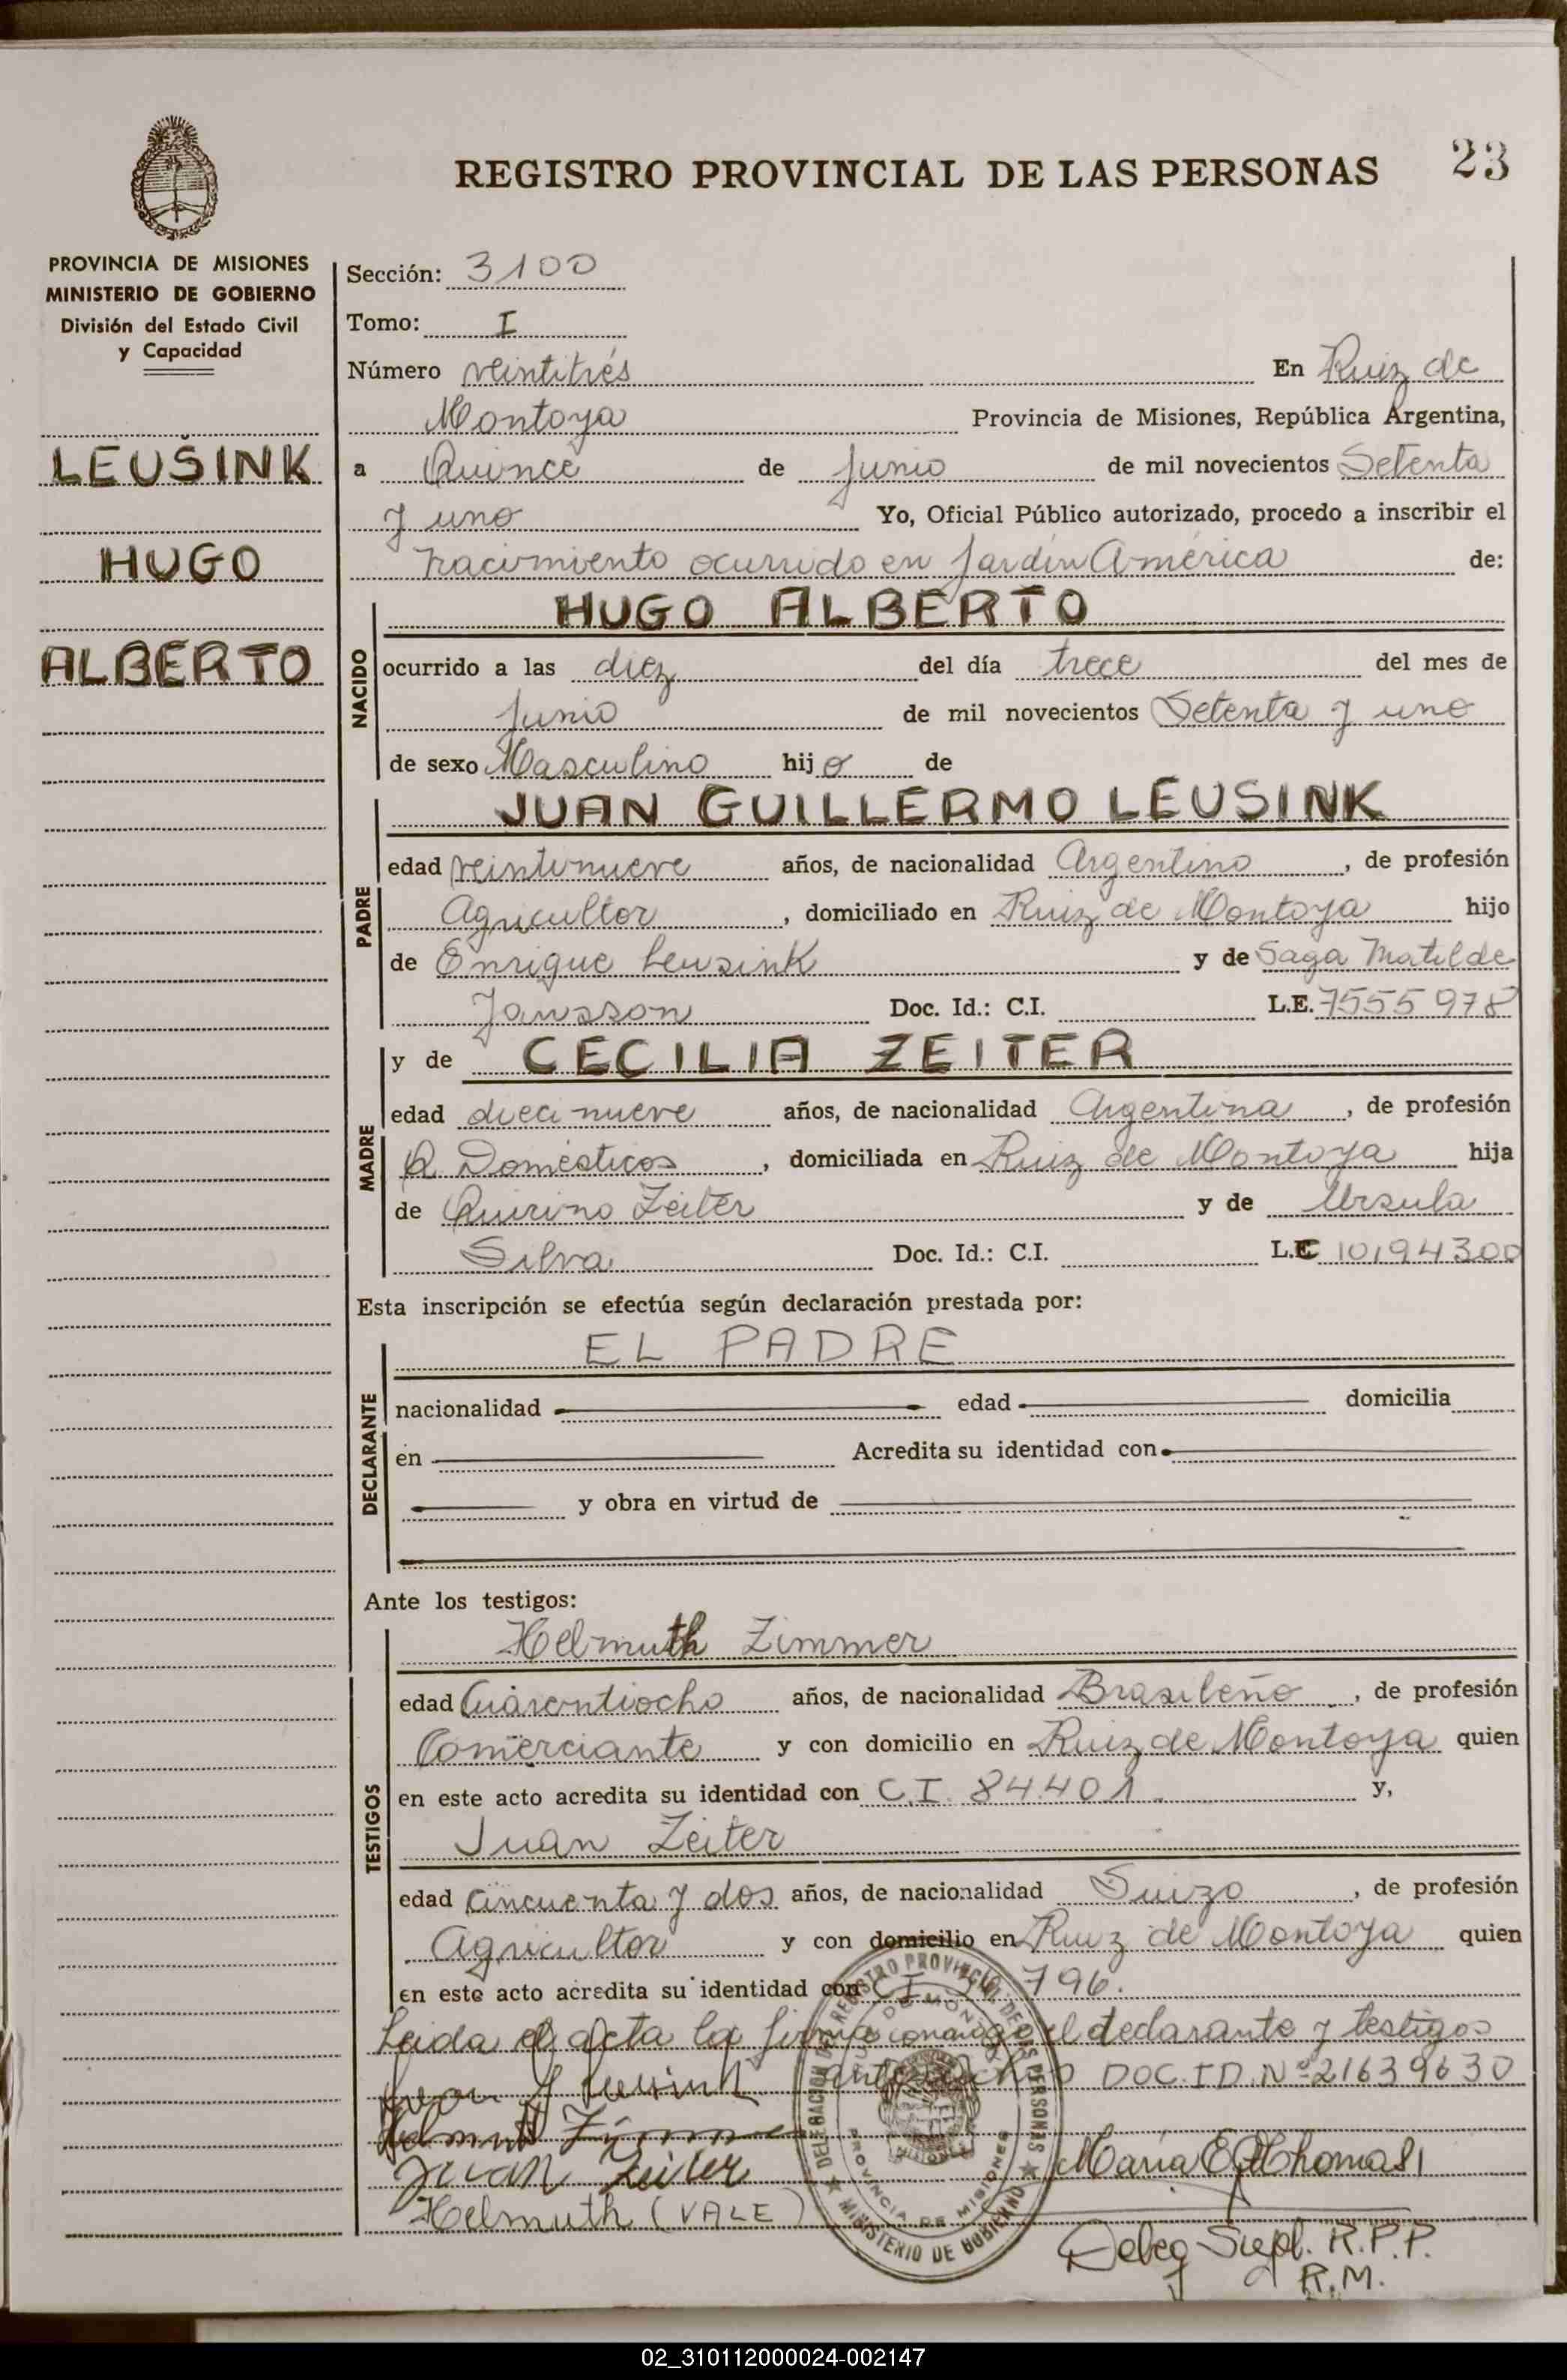 REGISTRO PROVINCIAL DE LAS PERSONAS 23
PROVINCIA DE MISIONES
MINISTERIO DE GOBIERNO
División del Estado Civil
y Capacidad
LEUSINK
HUGO
ALBERTO
Sección: 3100
Tomo: I
Número veintitrés En Ruiz de
Montoya Provincia de Misiones, República Argentina,
a Quince de Junio de mil novecientos Setenta
y uno Yo, Oficial Público autorizado, procedo a inscribir el
nacimiento ocurrido en Jardín América de:
NACIDO
HUGO ALBERTO
ocurrido a las diez del día trece del mes de
Junio de mil novecientos Setenta y uno
de sexo Masculino hijo de
PADRE
JUAN GUILLERMO LEUSINK
edad veintinueve años, de nacionalidad Argentino, de profesión
Agricultor, domiciliado en Ruiz de Montoya hijo
de Enrique Leusink y de Saga Matilde
Jansson Doc. Id.: C.I. L.E. 7555978
MADRE
y de CECILIA ZEITER
edad diecinueve años, de nacionalidad Argentina, de profesión
Q. Domésticos, domiciliada en Ruiz de Montoya hija
de Quirino Zeiter y de Ursula
Silva Doc. Id.: C.I. L.C 10194300
Esta inscripción se efectúa según declaración prestada por:
DECLARANTE
EL PADRE
nacionalidad edad domicilia
en Acredita su identidad con
y obra en virtud de
Ante los testigos:
TESTIGOS
Helmuth Zimmer
edad Cuarentiocho años, de nacionalidad Brasileño, de profesión
Comerciante y con domicilio en Ruiz de Montoya quien
en este acto acredita su identidad con C.I. 84.401. y,
Juan Zeiter
edad cincuenta y dos años, de nacionalidad Suizo, de profesión
Agricultor y con domicilio en Ruiz de Montoya quien
en este acto acredita su identidad con C.I. 796.
Leida el acta la firma conmigo el declarante y testigos
DOC. ID. Nº 21639630
Juan Zeiter
María E Thomas
Helmuth (VALE)
Deleg Supl. R.P.P.
R.M.
DELEGACION DEL REGISTRO PROVINCIAL DE LAS PERSONAS
MINISTERIO DE GOBIERNO
PROVINCIA DE MISIONES
MISIONES
02_310112000024-002147